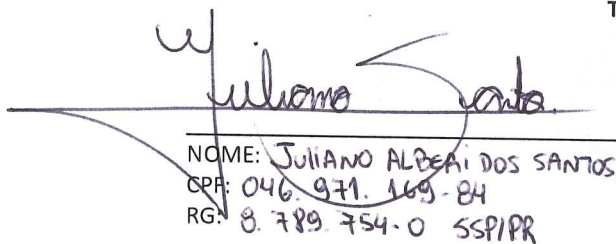 T
Juliano Santos
NOME: JULIANO ALBERI DOS SANTOS
CPF: 046.971.169-84
RG: 8.789.754-0 SSP/PR